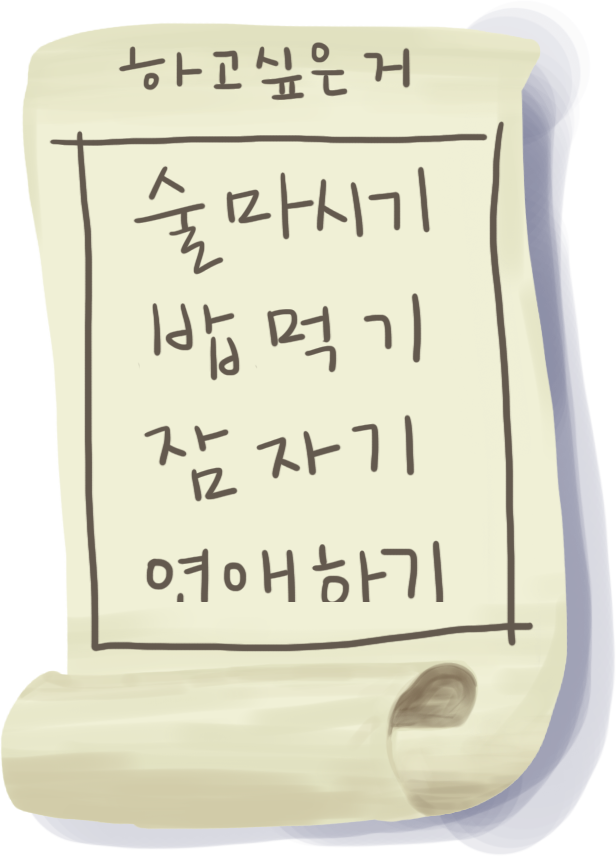 하고싶은 거
술 마시기
밥 먹기
잠 자기
연애하기